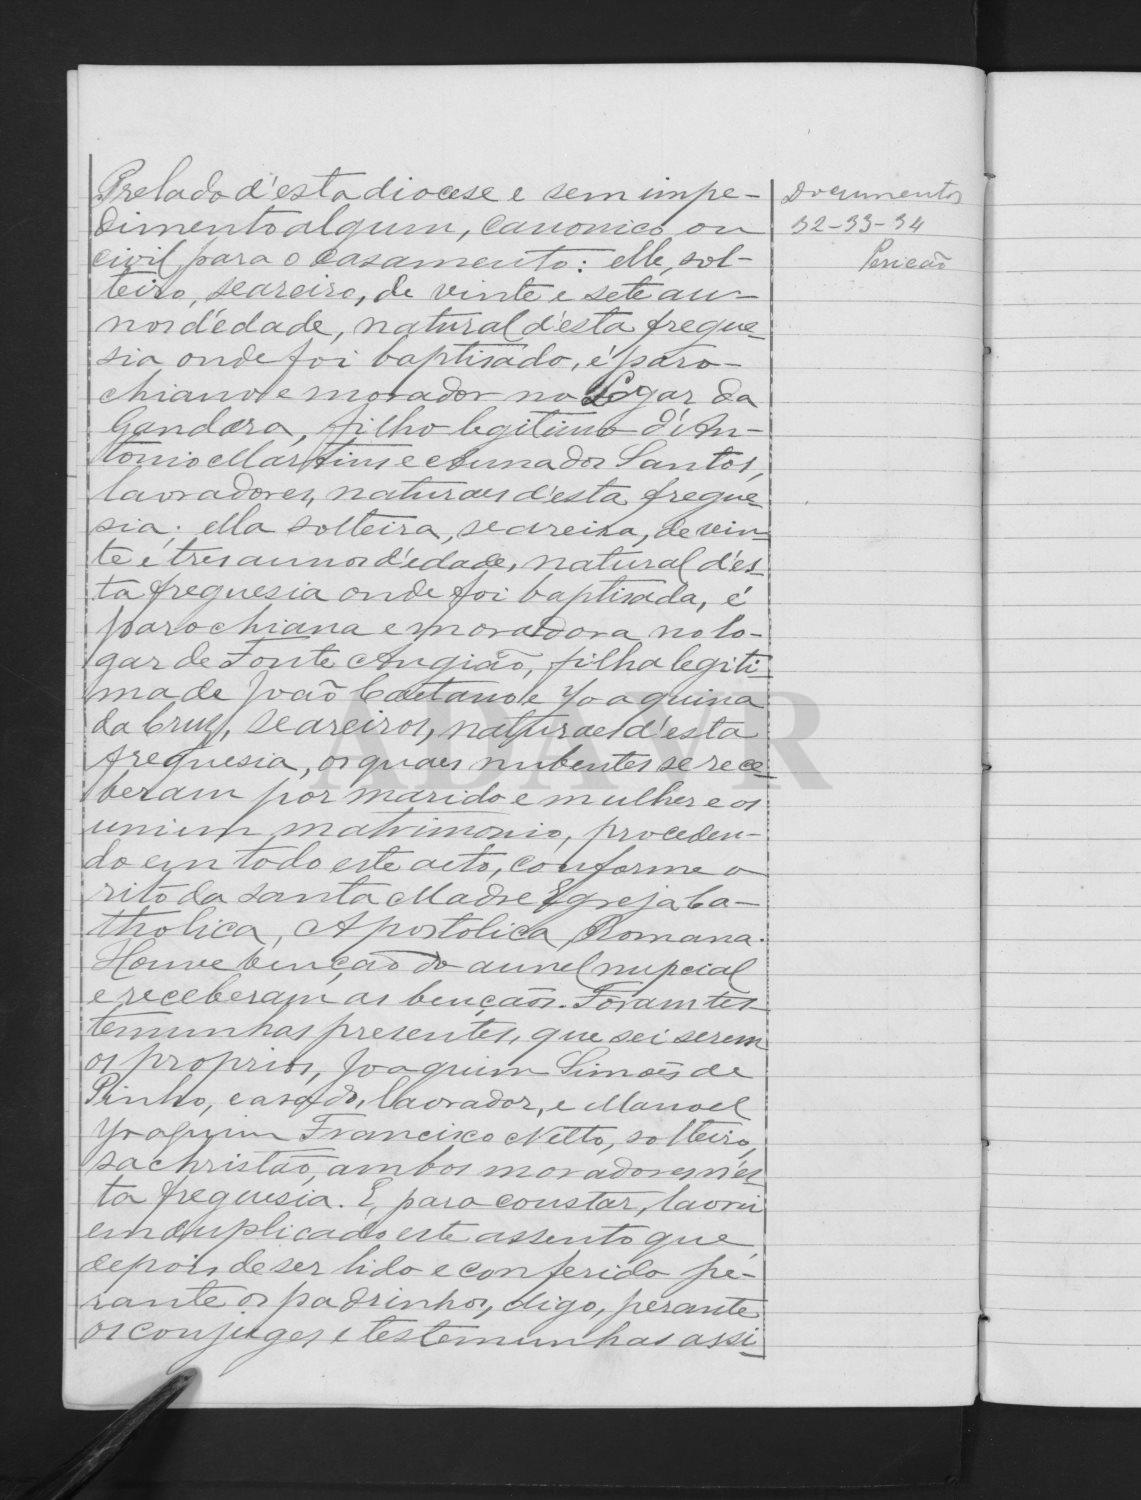 Prelado d'esta diocese e sem impe-
dimento algum, canonico ou
civil, para o casamento: elle, sol-
teiro, seareiro, de vinte e sete an-
nos d'edade, natural d'esta fregue-
sia onde foi baptisado, é paro-
chiano e morador no Logar da
Gandara, filho legitimo d'An-
tonio Martins e Anna dos Santos,
lavradores, naturaes d'esta fregue-
sia; ella solteira, seareira, de vin-
te e tres annos d'edade, natural d'es-
ta freguesia onde foi baptisada, é
parochiana e moradora no lo-
gar de Fonte Angião, filha legiti-
ma de João Caetano e Joaquina
da Cruz, seareiros, naturaes d'esta
freguesia, os quaes nubentes se rece-
beram por marido e mulher e os
uni em matrimonio, proceden-
do em todo este acto, conforme o
rito da santa Madre Egreja Ca-
tholica, Apostolica, Romana.
Houve benção do annel nupcial
e receberam as bençãos. Foram tes-
temunhas presentes, que sei serem
os proprios, Joaquim Simões de
Pinho, casado, lavrador, e Manoel
Joaquim Francisco Netto, solteiro,
sachristão, ambos moradores n'es-
ta freguesia. E, para constar, lavrei
em duplicado este assento que,
depois de ser lido e conferido pe-
rante os padrinhos, digo, perante
os conjuges e testemunhas assi-
Documentos
32-33-34
ADAVR